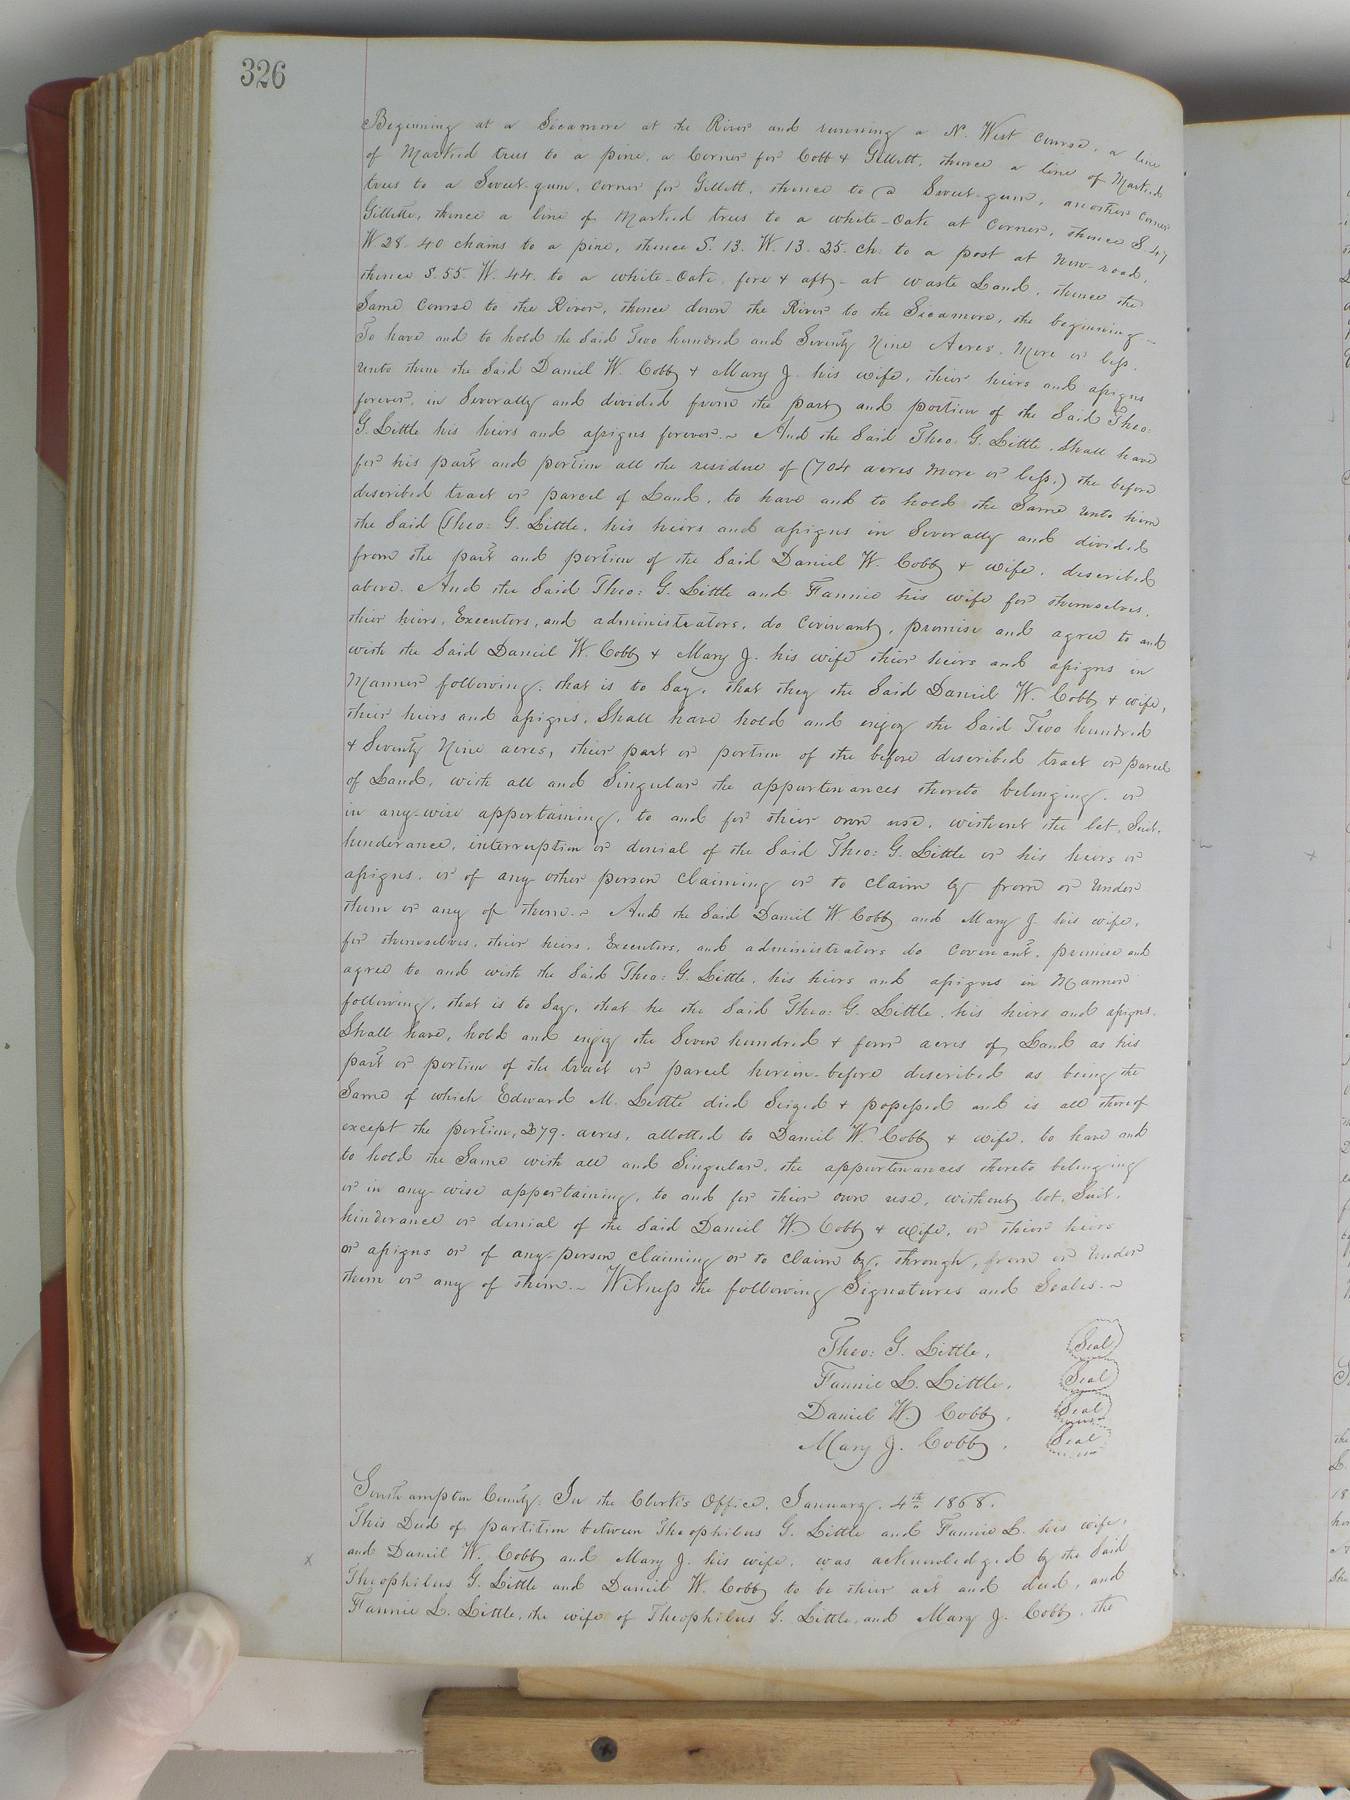 326
Beginning at a Sicamore at the River and running a N. West course, a line
of Marked trees to a pine, a Corner for Cobb & Gillett, thence a line of Marked
trees to a Sweet-gum, corner for Gillett, thence to a Sweet-gum, another corner
Gillette, thence a line of Marked trees to a white-Oak at Corner, thence S. 47
W 28. 40 chains to a pine, thence S. 13. W. 13. 25. ch. to a post at New-road,
thence S. 55. W. 44. to a white-Oak, fore & aft,- at waste Land, thence the
Same course to the River, thence down the River to the Sicamore, the beginning -
To have and to hold the Said Two hundred and Seventy Nine Acres, More or less,
unto them the Said Daniel W. Cobb & Mary J. his wife, their heirs and assigns
forever, in Severally and divided from the part and portion of the Said Theo:
G. Little his heirs and assigns forever.~ And the Said Theo: G. Little, Shall have
for his part and portion all the residue of (704 acres More or less,) the before
described tract or parcel of Land, to have and to hold the Same unto him
the Said Theo: G. Little, his heirs and assigns in Severally and divided
from the part and portion of the Said Daniel W. Cobb & wife, described
above. And the Said Theo: G. Little and Fannie his wife for themselves,
their heirs, Executors, and administrators, do Covenant, promise and agree to and
with the Said Daniel W. Cobb & Mary J. his wife their heirs and assigns in
Manner following: that is to Say, that they the Said Daniel W. Cobb & wife,
their heirs and assigns, Shall have hold and enjoy the Said Two hundred
& Seventy Nine acres, their part or portion of the before described tract or parcel
of Land, with all and Singular the appurtenances thereto belonging, or
in any-wise appertaining, to and for their own use, without the let, Suit,
hinderance, interruption or denial of the Said Theo: G. Little or his heirs or
assigns, or of any other person claiming or to claim by from or under
them or any of them.~ And the Said Daniel W Cobb and Mary J his wife,
for themselves, their heirs, Executors, and administrators do covenant, promise and
agree to and with the Said Theo: G. Little, his heirs and assigns in Manner
following, that is to Say, that he the Said Theo: G. Little, his heirs and assigns,
Shall have, hold and enjoy the Seven hundred & four acres of Land as his
part or portion of the tract or parcel herein-before described as being the
Same of which Edward M. Little died Seized & possessed and is all thereof
except the portion, 279. acres, allotted to Daniel W. Cobb & wife, to have and
to hold the Same with all and Singular, the appurtenances thereto belonging
or in any-wise appertaining, to and for their own use, without let, Suit,
hinderance or denial of the Said Daniel W. Cobb & wife, or their heirs
or assigns or of any-person claiming or to claim by, through, from or under
them or any of them.~ Witness the following Signatures and Seals.~
Theo: G. Little, Seal
Fannie L. Little, Seal
Daniel W. Cobb, Seal
Mary J. Cobb, Seal
Southampton County: In the Clerk's Office, January, 4th 1868.
This Deed of partition between Theophilus G. Little and Fannie L. his wife,
x and Daniel W. Cobb and Mary J. his wife, was acknowledged by the Said
Theophilus G. Little and Daniel W. Cobb to be their act and deed, and
Fannie L. Little, the wife of Theophilus G. Little, and Mary J. Cobb, the